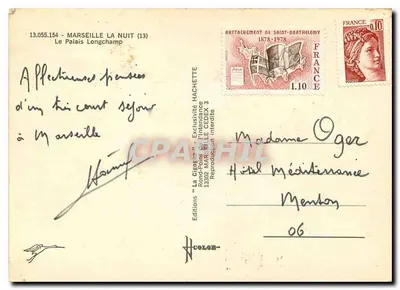 13.055.154 - MARSEILLE LA NUIT (13)
Le Palais Longchamp
Affectueuses pensées
d'un très court séjour
à Marseille
RATTACHEMENT DE SAINT-BARTHELEMY
1878-1978
FRANCE
1.10
FRANCE
0.10
Editions "La Cigogne" - Exclusivité HACHETTE
Rond-Point de l'Indépendance
13302 MARSEILLE CEDEX 3
Reproduction interdite
COLOR
Madame Oger
Hôtel Méditerranée
Menton
06